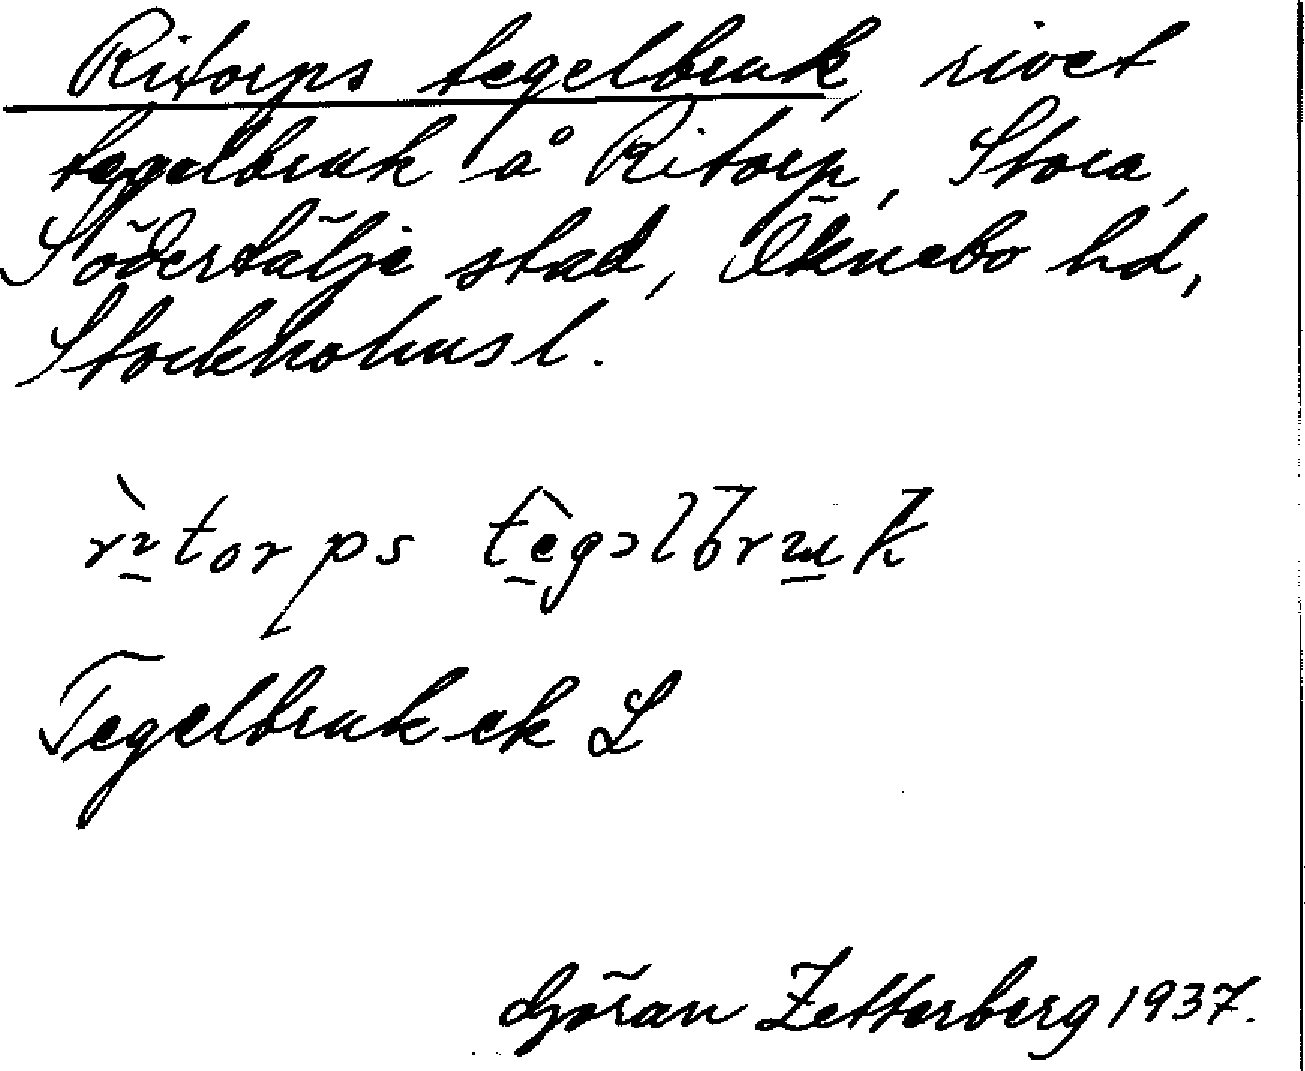 Ritorps tegelbruk, rivet
tegelbruk å Ritorp, Stora,
Södertälje stad, Öknebo hd,
Stockholms l.
rı̀torps tègəlbruk
Tegelbruk ek L
Göran Zetterberg 1937.